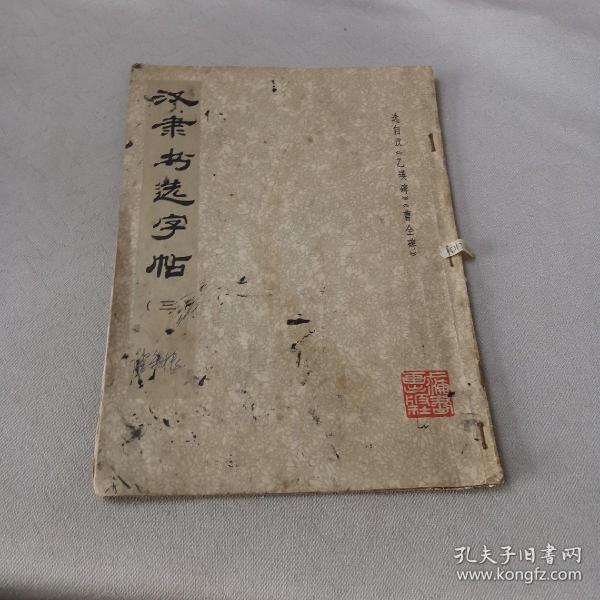 汉隶书选字帖
(三)
选自汉《乙瑛碑》《曹全碑》
上海书画出版社
孔夫子旧书网
www.kongfz.com